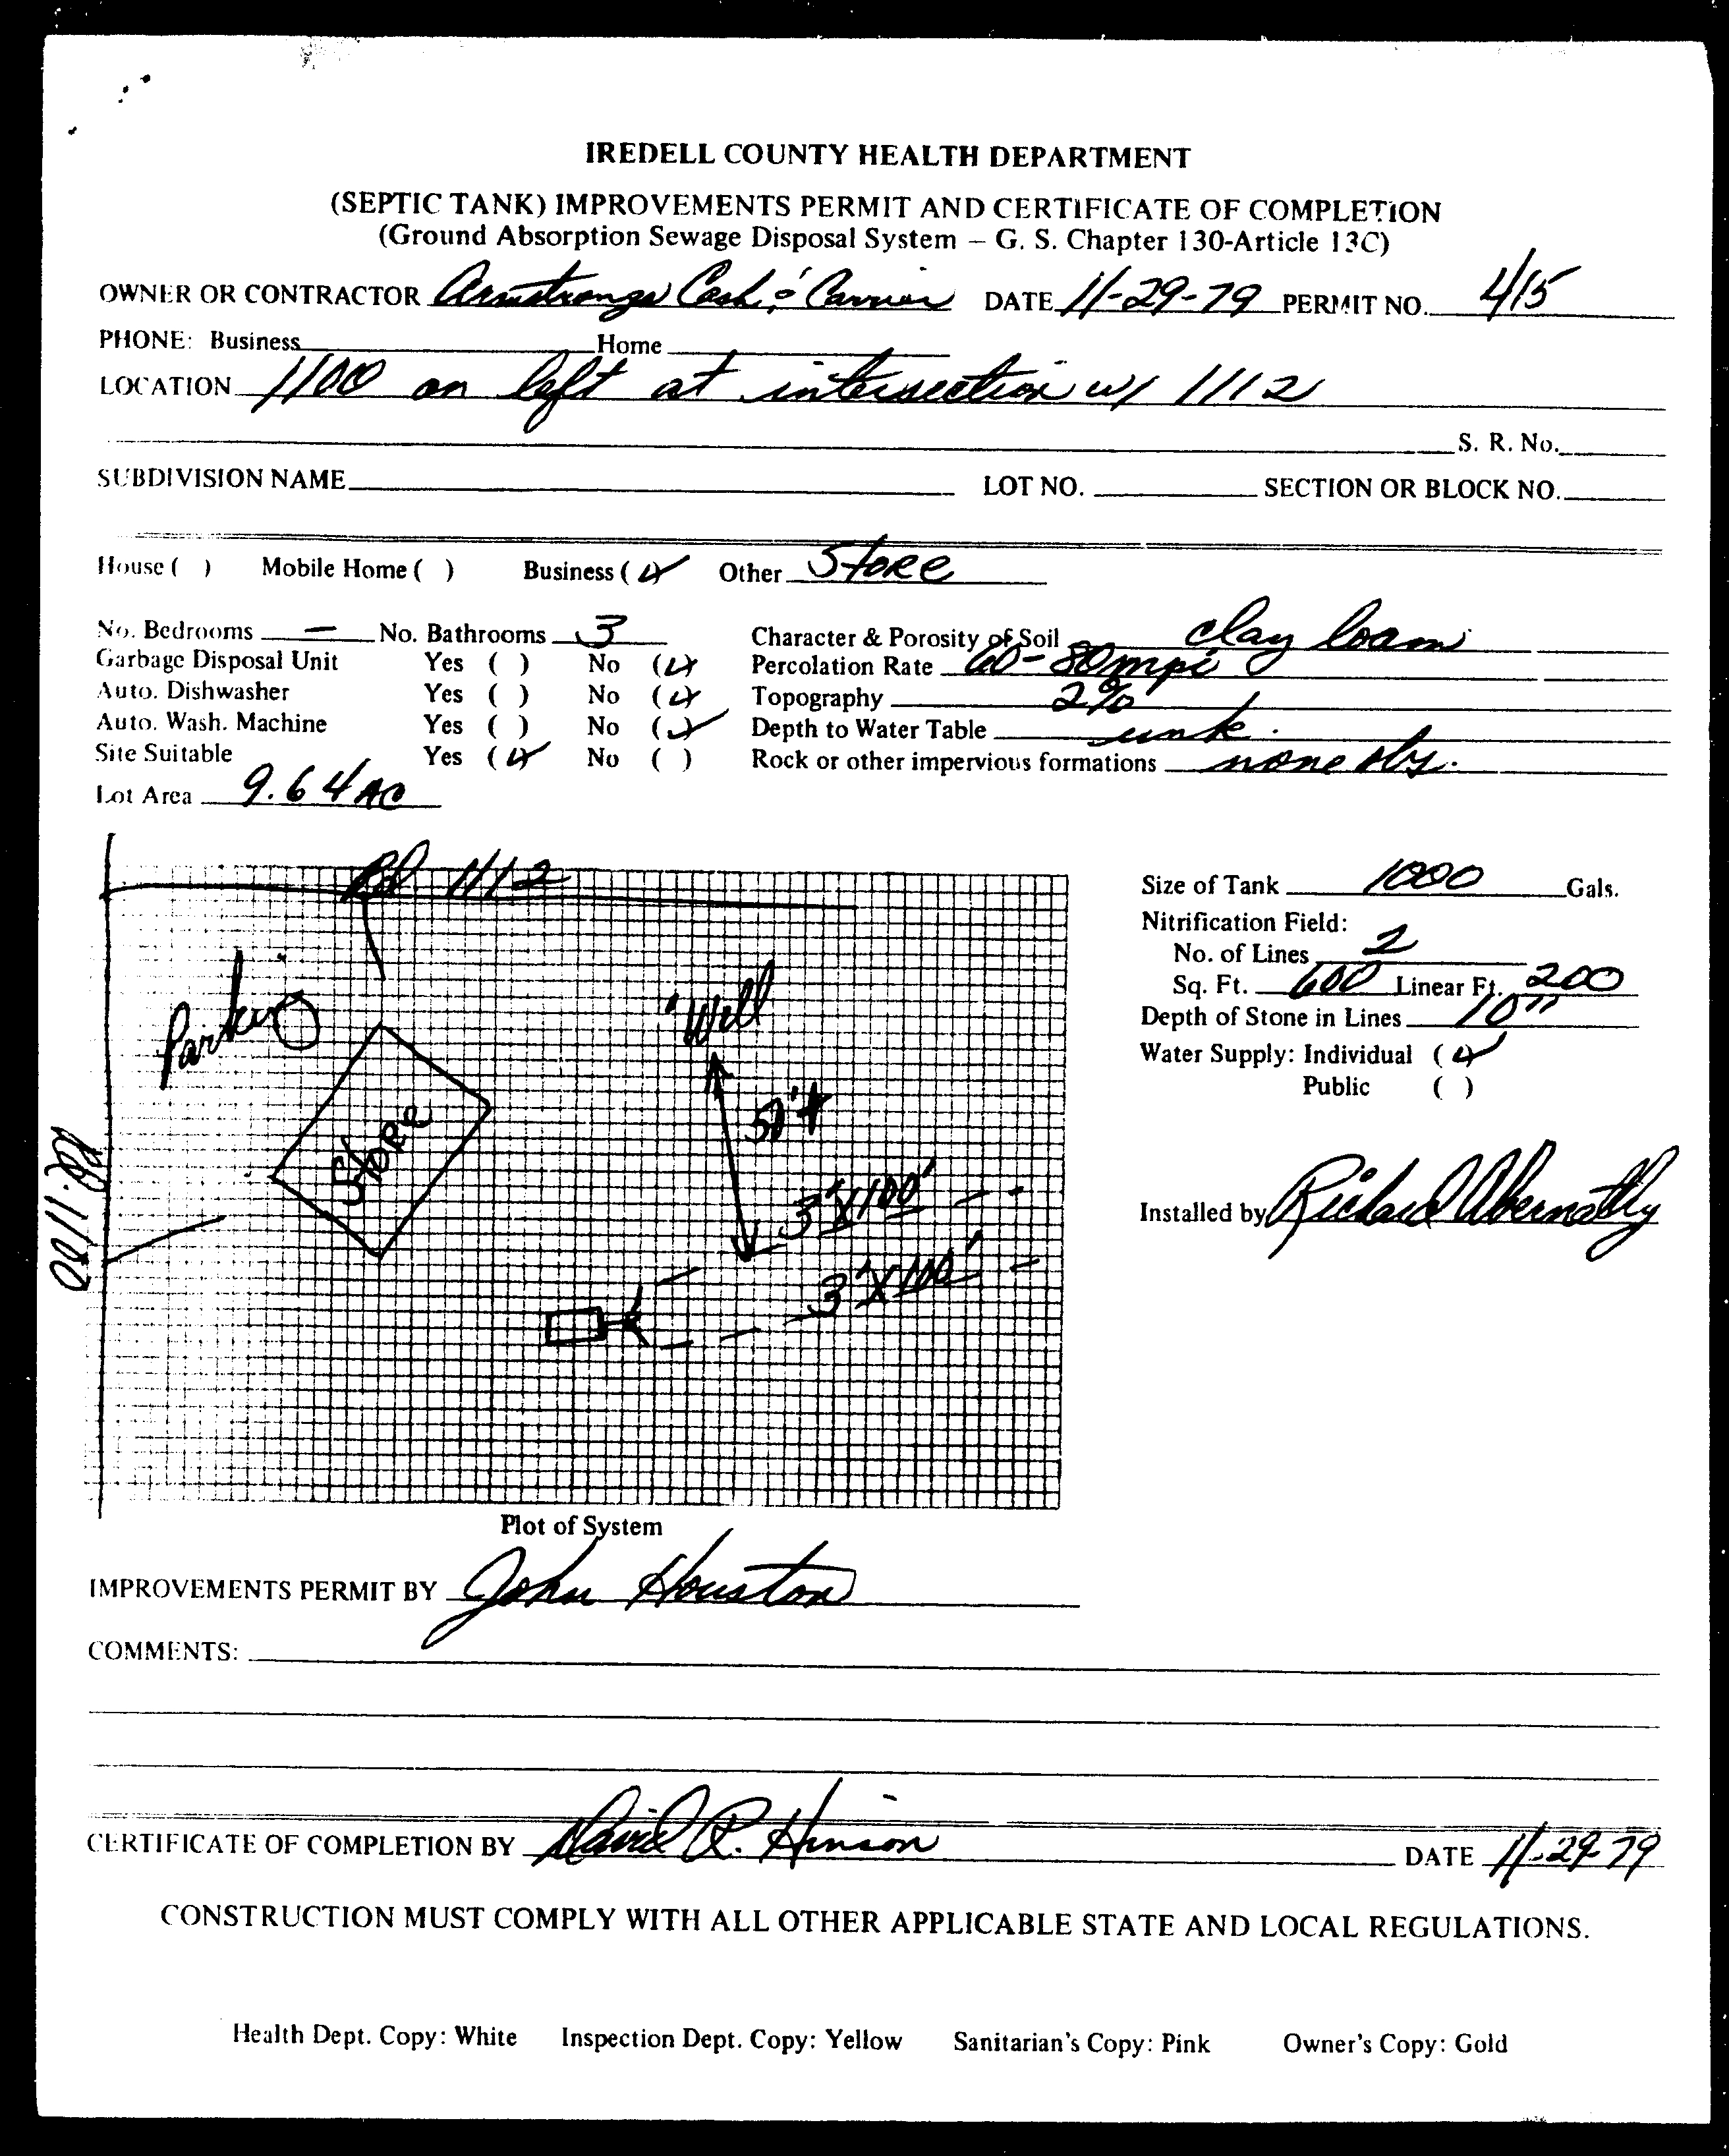 IREDELL COUNTY HEALTH DEPARTMENT
(SEPTIC TANK) IMPROVEMENTS PERMIT AND CERTIFICATE OF COMPLETION
(Ground Absorption Sewage Disposal System – G. S. Chapter 130-Article 13C)
OWNER OR CONTRACTOR Armstrongs Cash & Carrier DATE 11-29-79 PERMIT NO. 415
PHONE: Business Home
LOCATION 1100 on left at intersection w/ 1112
S. R. No.
SUBDIVISION NAME LOT NO. SECTION OR BLOCK NO.
House ( ) Mobile Home ( ) Business (✓) Other Store
No. Bedrooms — No. Bathrooms 3 Character & Porosity of Soil clay loam
Garbage Disposal Unit Yes ( ) No (✓) Percolation Rate 60-80 mpi
Auto. Dishwasher Yes ( ) No (✓) Topography 2%
Auto. Wash. Machine Yes ( ) No (✓) Depth to Water Table unk.
Site Suitable Yes (✓) No ( ) Rock or other impervious formations none obs.
Lot Area 9.64 AC
Rd 1112
Parking
Well
Store
50'+
Rd. 1100
3'X100'
3'X100'
Size of Tank 1000 Gals.
Nitrification Field:
No. of Lines 2
Sq. Ft. 600 Linear Ft. 200
Depth of Stone in Lines 10"
Water Supply: Individual (✓)
Public ( )
Installed by Richard Abernathy
Plot of System
IMPROVEMENTS PERMIT BY John Houston
COMMENTS:
CERTIFICATE OF COMPLETION BY David R. Hinson DATE 11-29-79
CONSTRUCTION MUST COMPLY WITH ALL OTHER APPLICABLE STATE AND LOCAL REGULATIONS.
Health Dept. Copy: White Inspection Dept. Copy: Yellow Sanitarian's Copy: Pink Owner's Copy: Gold